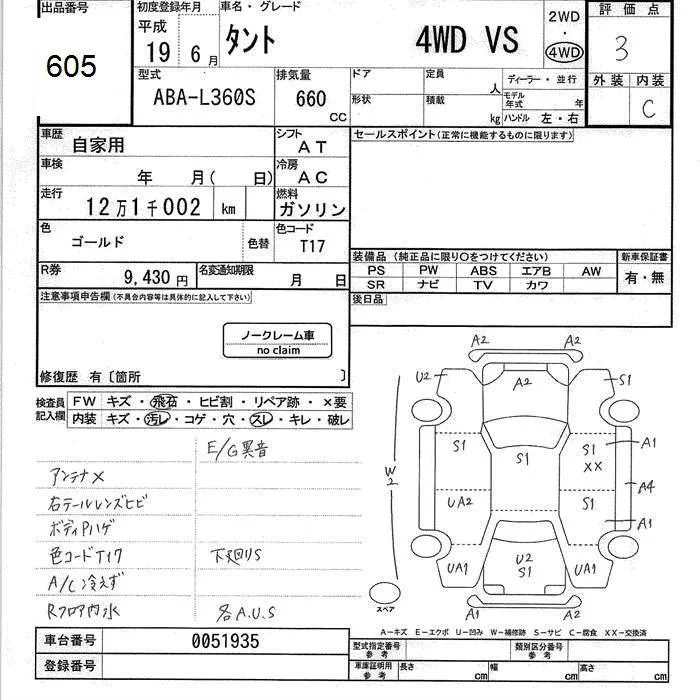 出品番号
605
初度登録年月
平成
19 6月
車名・グレード
タント 4WD VS
2WD
・
4WD
評価点
3
外装 内装
C
型式
ABA-L360S
排気量
660
CC
ドア
形状
定員
人
積載
kg
ディーラー・並行
モデル年式 年
ハンドル 左・右
車歴
自家用
シフト
AT
車検
年 月( 日)
冷房
AC
走行
12万1千002 km
燃料
ガソリン
色
ゴールド
色替
色コード
T17
R券
9,430円
名変通知期限
月 日
セールスポイント(正常に機能するものに限ります)
装備品 (純正品に限り○をつけてください)
PS PW ABS エアB AW
SR ナビ TV カワ
新車保証書
有・無
後日品
注意事項申告欄(不具合内容等は具体的に記入して下さい)
ノークレーム車
no claim
修復歴 有〔箇所 〕
検査員記入欄
FW キズ・飛石・ヒビ割・リペア跡・×要
内装 キズ・汚レ・コゲ・穴・スレ・キレ・破レ
E/G異音
アンテナX
右テールレンズヒビ
ボディPハゲ
色コードT17
下廻りS
A/C冷えず
Rフロア内水
各A.U.S
A2 A2
U2 A2 S1
S1 S1 S1 A1
XX
W2
UA2 S1 A4
A1
UA1 U2 UA1
S1
スペア
A1 A2
A－キズ E－エクボ U－凹み W－補修跡 S－サビ C－腐食 XX－交換済
車台番号 0051935
登録番号
型式指定番号
参考
類別区分番号
参考
車庫証明用
参考
長さ cm 幅 cm 高さ cm